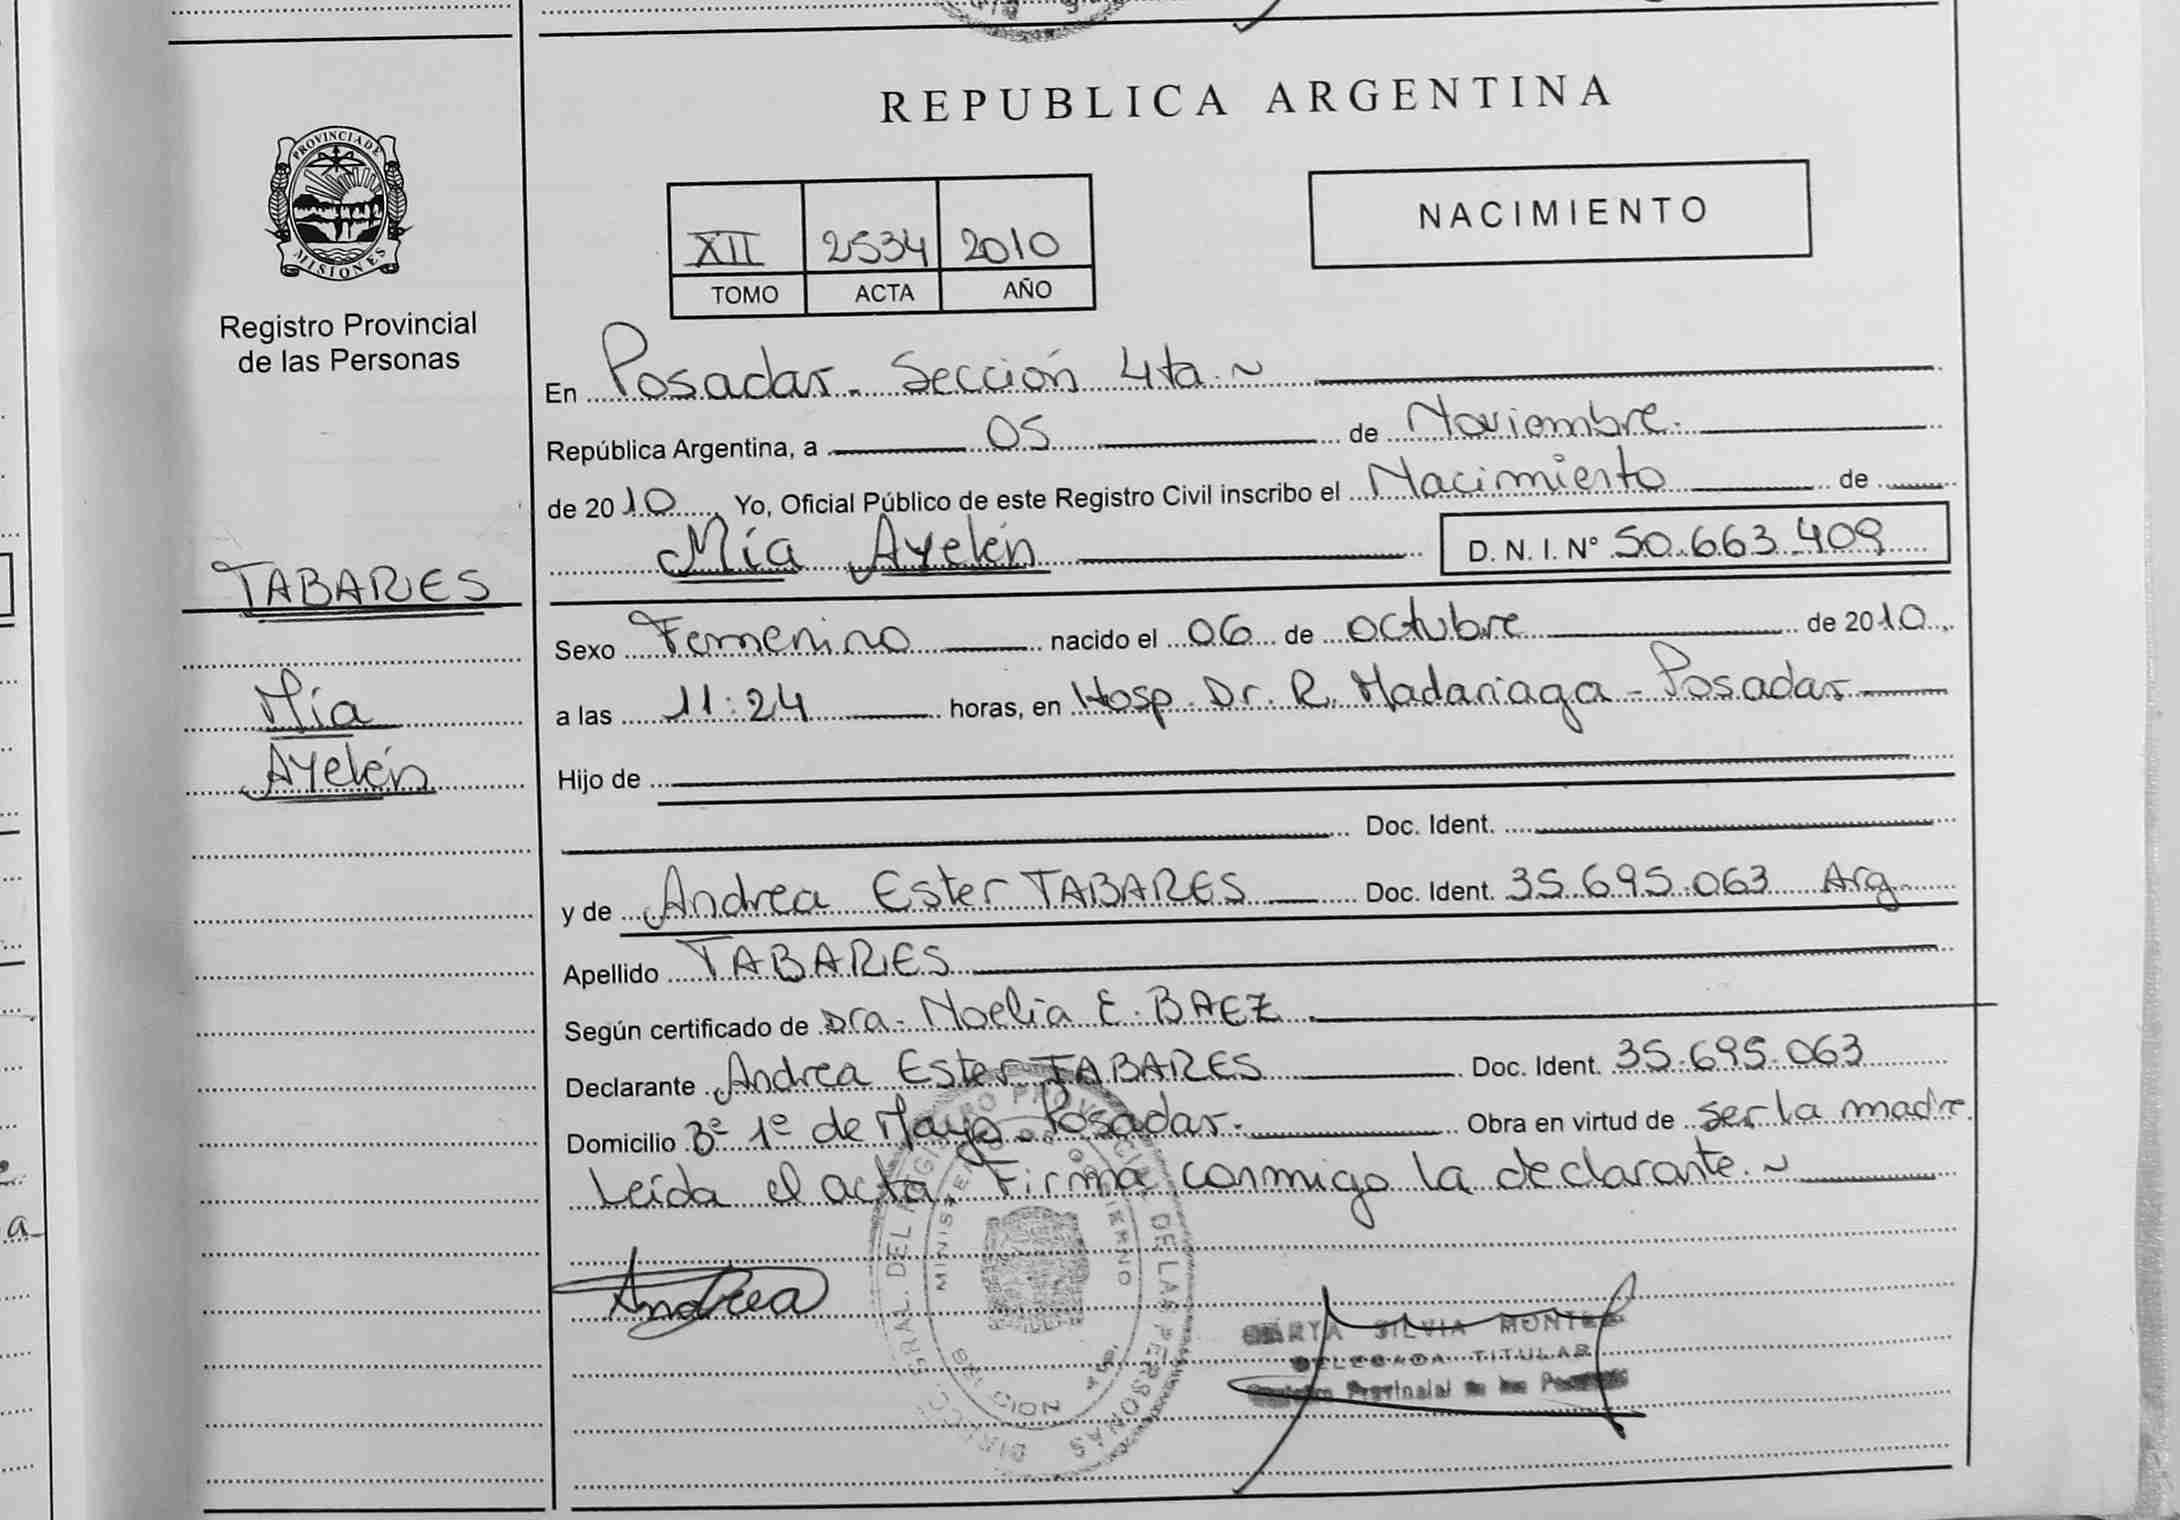 REPUBLICA ARGENTINA
PROVINCIA DE
MISIONES
Registro Provincial
de las Personas
NACIMIENTO
XII 2534 2010
TOMO ACTA AÑO
En Posadas. Sección 4ta.~
República Argentina, a 05 de Noviembre.
de 2010. Yo, Oficial Público de este Registro Civil inscribo el Nacimiento de
Mía Ayelén D. N. I. Nº 50.663.409
TABARES
Mía
Ayelén
Sexo Femenino nacido el 06 de octubre de 2010.
a las 11:24 horas, en Hosp. Dr. R. Madariaga - Posadas
Hijo de
Doc. Ident.
y de Andrea Ester TABARES Doc. Ident. 35.695.063 Arg.
Apellido TABARES
Según certificado de Dra. Noelia E. BAEZ.
Declarante Andrea Ester TABARES Doc. Ident. 35.695.063
Domicilio Bº 1º de Mayo. Posadas. Obra en virtud de ser la madre.
Leída el acta, Firma conmigo la declarante.~
Andrea
SILVIA
DELEGADA TITULAR
DEL REGISTRO PROVINCIAL DE LAS PERSONAS
a